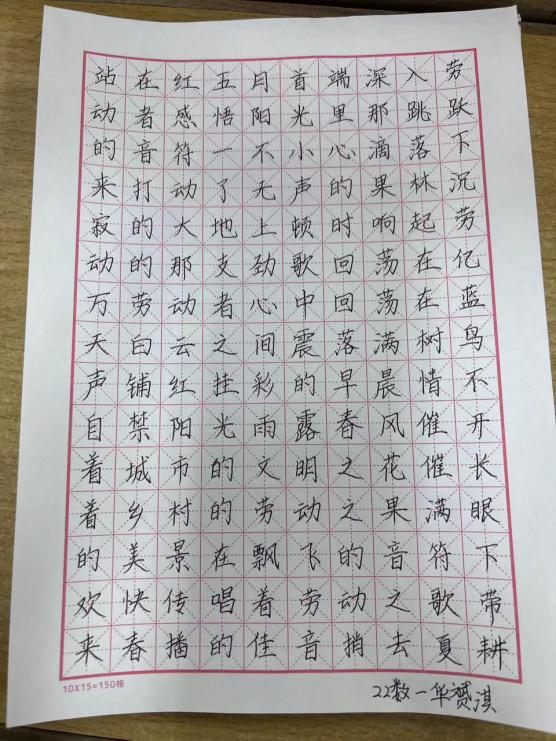 站在红五月首端深入劳
动者感悟阳光里那跳跃
的音符一不小心滴落下
来打动了无声的果林沉
寂的大地上顿时响起劳
动的那支劲歌回荡在亿
万劳动者心中回荡在蓝
天白云之间震落满树鸟
声铺红挂彩的早晨情不
自禁阳光雨露春风催开
着城市的文明之花催长
着乡村的劳动之果满眼
的美景在飘飞的音符下
欢快传唱着劳动之歌带
来春播的佳音捎去夏耕
10X15=150格
22数一华赟淇